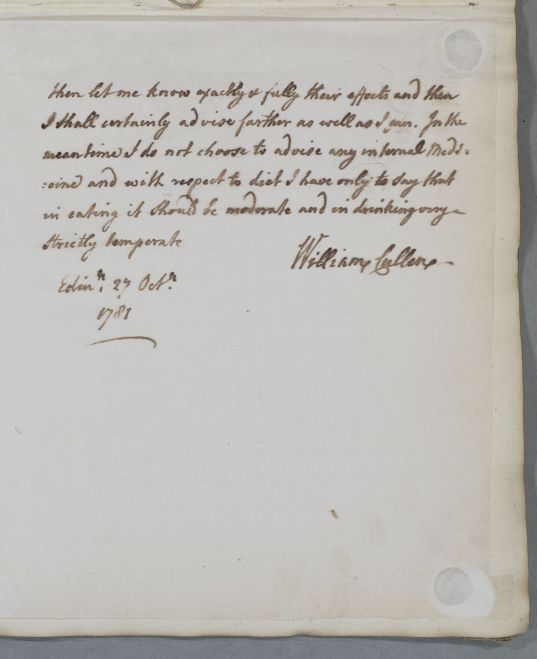 then let me know exactly & fully their effects and then
I shall certainly advise farther as well as I can. In the
meantime I do not choose to advise any internal Medi:
:cine and with respect to diet I have only to say that
in eating it should be moderate and in drinking very
strictly temperate
William Cullen
Edinr. 27 Octr.
1781